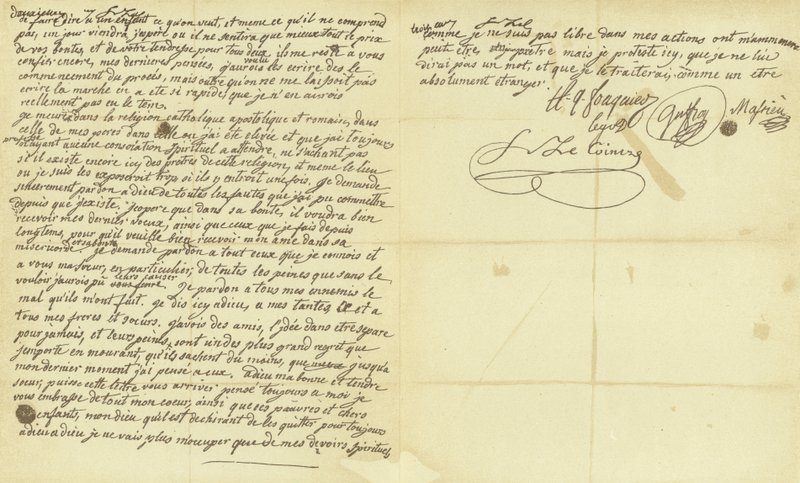 de faire dire à un enfant ce qu'on veut, et meme ce qu'il ne comprend
pas, un jour viendra j'espere ou il ne sentira que mieux tout le prix
de vos bontés et de votre tendresse pour tous deux, il me reste à vous
confier encore, mes dernieres pensées, j'aurois voulu les ecrire dès le
commencement du procès, mais outre qu'on ne me laissoit pas
ecrire la marche en a eté si rapide, que je n'en aurois
reellement pas eu le tem.
je meurs dans la religion catholique apostolique et romaine, dans
celle de mes peres, dans celle ou j'ai été elevée et que j'ai toujours
professée
n'ayant aucune consolation spirituel a attendre, ne sachant pas
si il existe encore icy des prêtres de cette religion, et meme le lieu
ou je suis les exposeroit trop si ils y entroit une fois. je demande
sincerement pardon a dieu de toutes les fautes que j'ai pu commettre
depuis que j'existe. j'espere que dans sa bonté, il voudra bien
recevoir mes derniers voeux, ainsi que ceux que je fais depuis
longtems, pour qu'il veuille bien recevoir mon ame dans sa
misericorde et sa bonté. je demande pardon a tout ceux que je connois et
a vous ma soeur, en particulier, de toutes les peines que sans le
vouloir j'aurois pu leurs causer
je pardonne a tous mes ennemis le
mal qu'ils m'ont fait. je dis icy adieu, a mes tantes et a
tous mes freres et soeurs. j'avois des amis, l'idée d'en etre separé
pour jamais, et leurs peines, sont un des plus grand regret que
j'emporte en mourant, qu'ils sachent du moins, que jusqu'a
mon dernier moment j'ai pensé a eux. adieu ma bonne et tendre
soeur, puisse cette lettre vous arriver pensé toujours a moi je
vous embrasse de tout mon coeur, ainsi que ces pauvres et chers
enfants, mon dieu qu'il est dechirant de les quitter pour toujours
adieu adieu je ne vais plus m'occuper que de mes devoirs spirituels,
comme je ne suis pas libre dans mes actions on m'amenera
peut etre, un pretre mais je proteste icy, que je ne lui
dirai pas un mot, et que je le traiterai comme un etre
absolument etranger.
A. Q. Fouquier
Legot
Guffroy
Massieu
L. Le Cointre